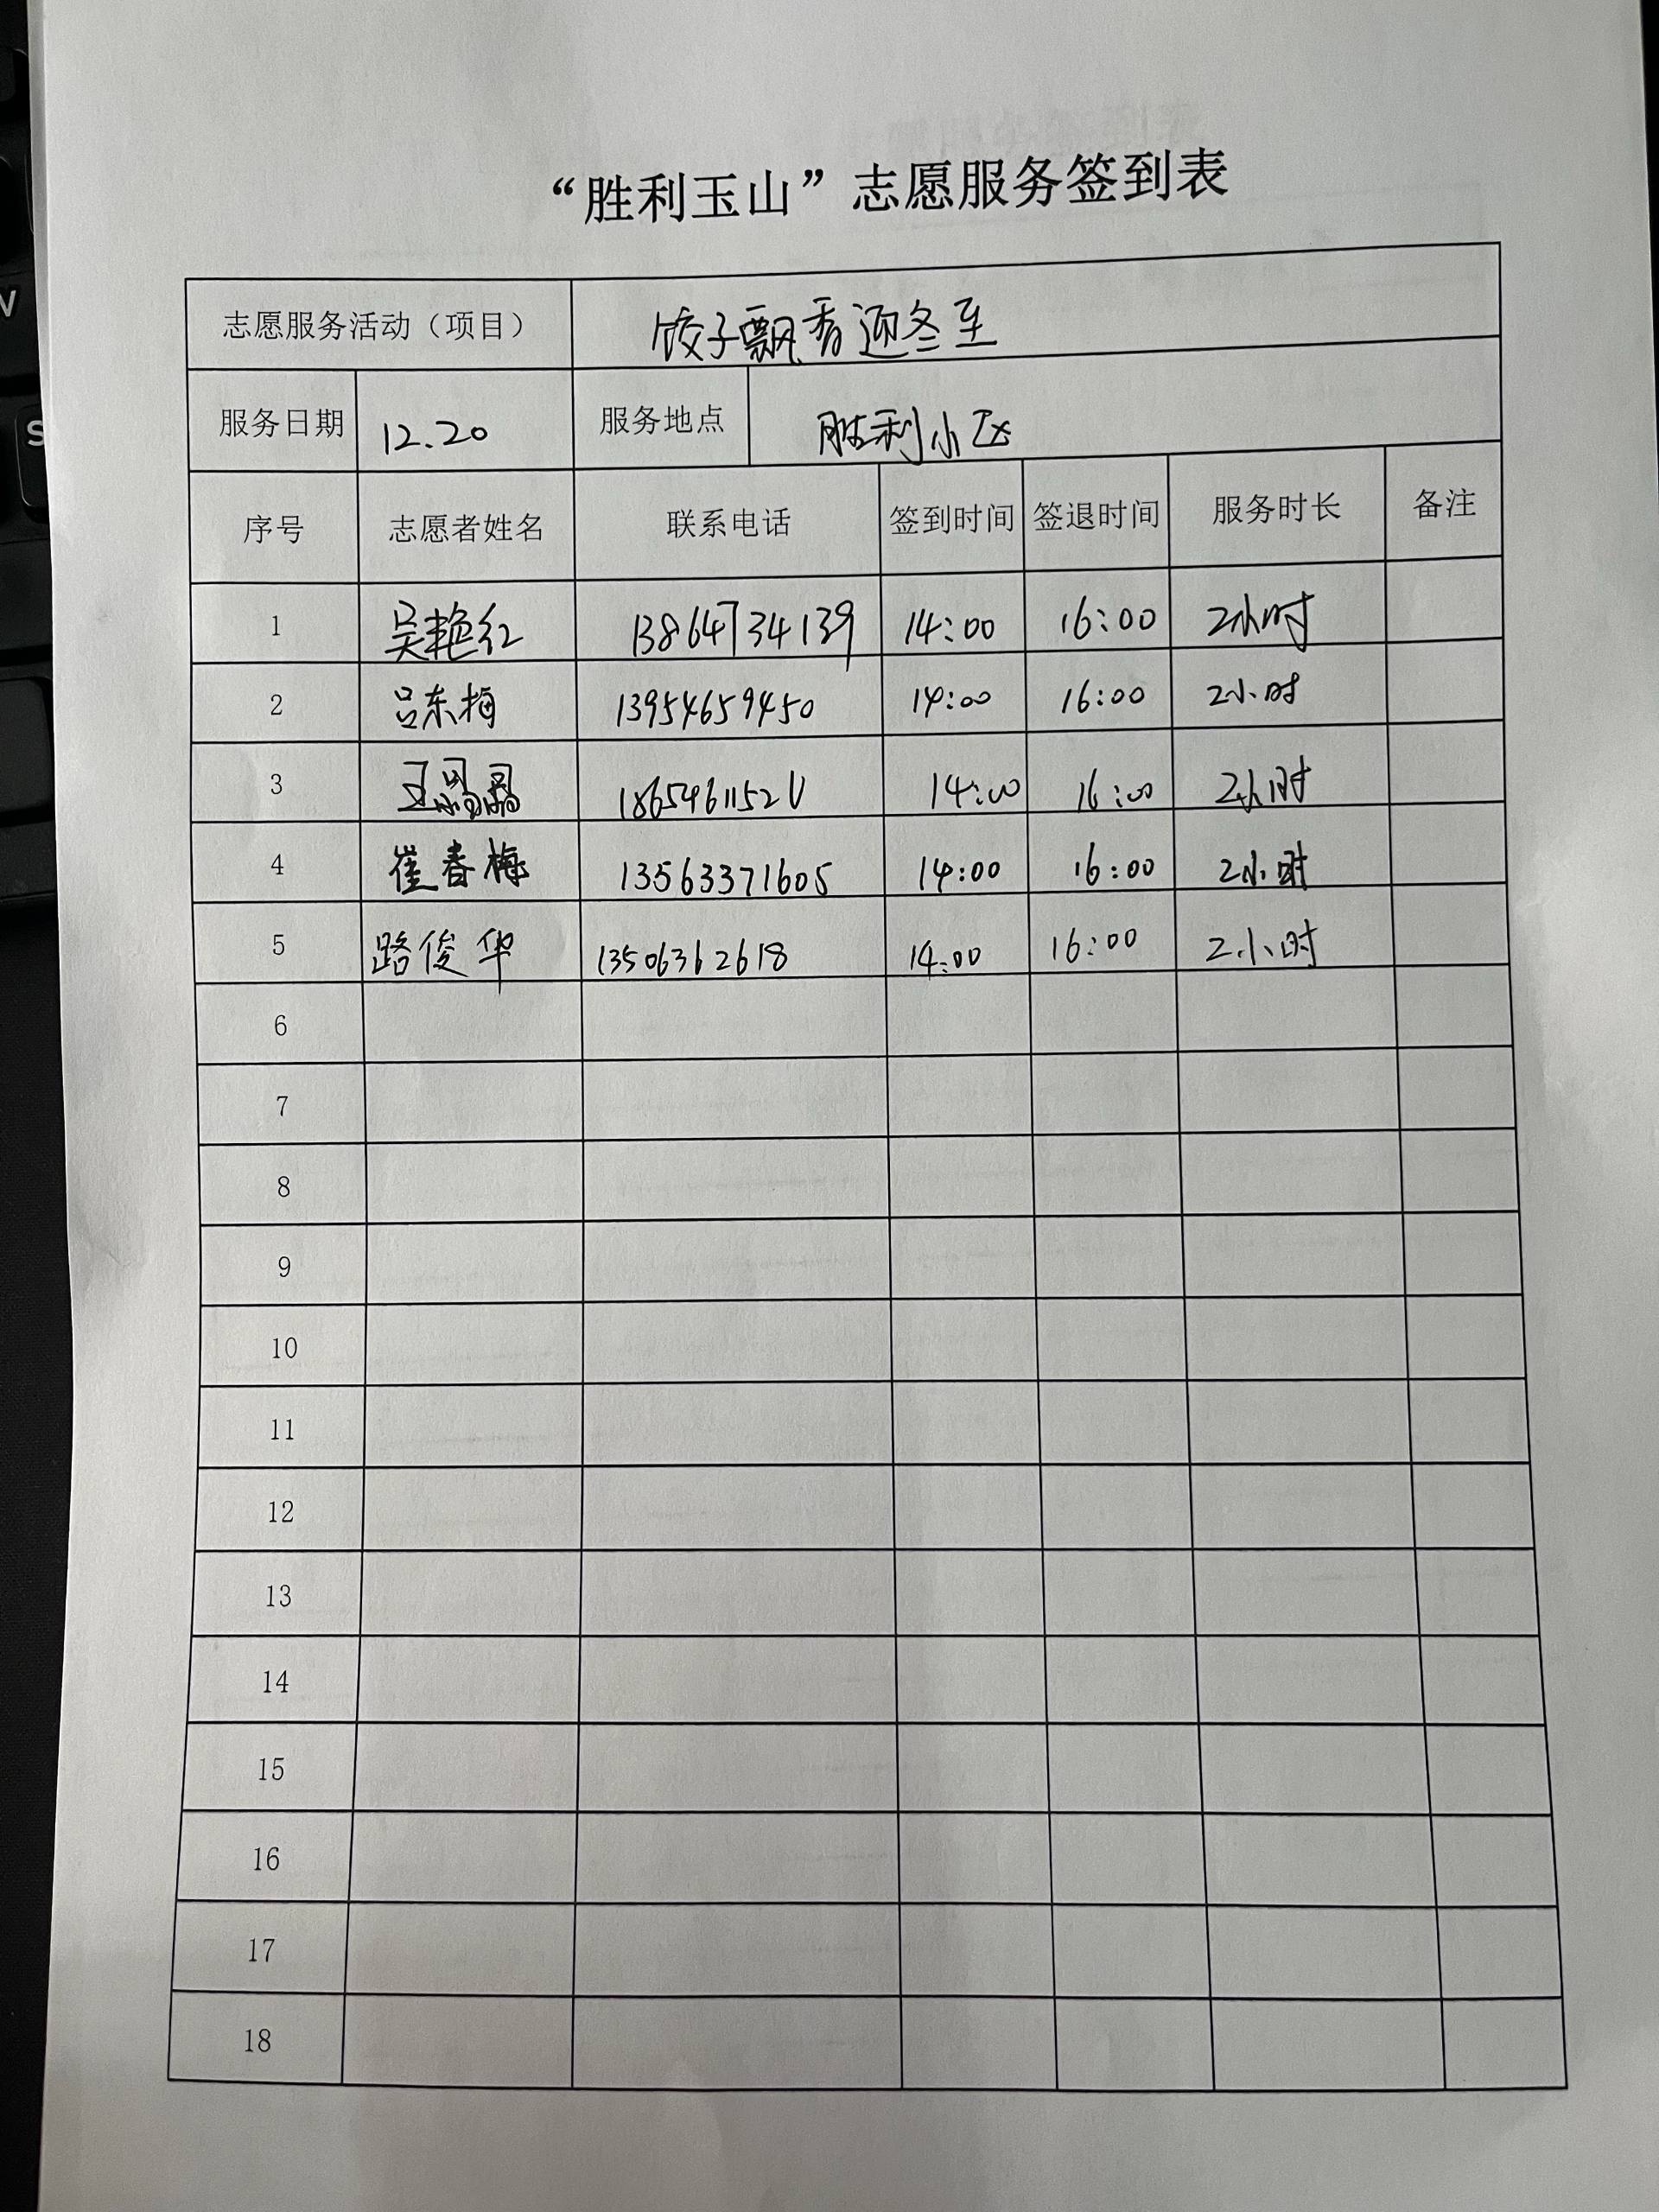 “胜利玉山”志愿服务签到表
志愿服务活动（项目） 饺子飘香迎冬至
服务日期 12.20 服务地点 胜利小区
序号 志愿者姓名 联系电话 签到时间 签退时间 服务时长 备注
1 吴艳红 13864734139 14:00 16:00 2小时
2 吕东梅 13954659450 14:00 16:00 2小时
3 王晶晶 14:00 16:00 2小时
4 崔春梅 13563371605 14:00 16:00 2小时
5 路俊华 13506362618 14:00 16:00 2小时
6
7
8
9
10
11
12
13
14
15
16
17
18